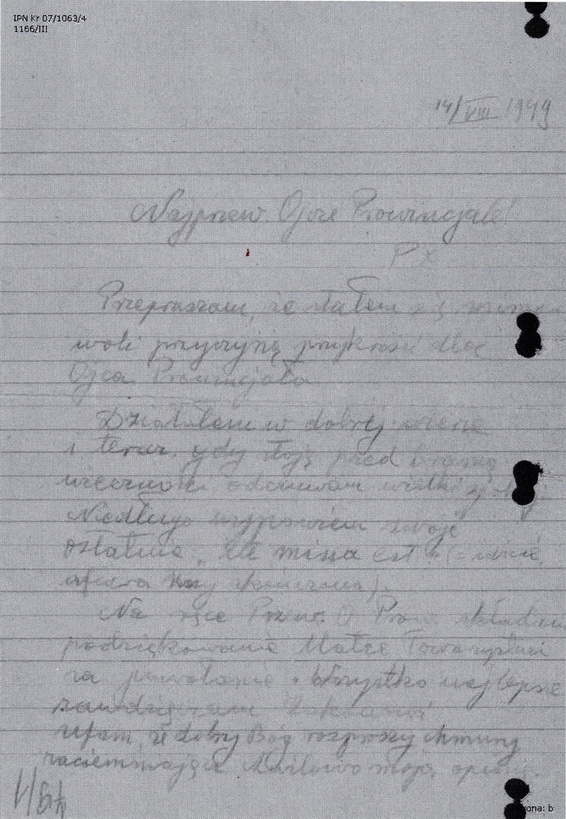 IPN Kr 07/1063/4
1166/III
14/VIII 1949
Najprzew. Ojcze Prowincjale!
P X
Przepraszam, że stałem się mimo
woli przyczyną przykrości dla
Ojca Prowincjała
Działałem w dobrej wierze
i teraz, gdy stoję przed bramą
wieczności odczuwam wielki
Niedługo wypowiem swoje
ostatnie "Ite missa est" (= idźcie,
ofiara skończona).
Na ręce Przew. O. Prow. składam
podziękowanie Matce Towarzystwu
za powołanie. Wszystko najlepsze
zawdzięczam Zakonowi
Ufam, że dobry Bóg rozproszy chmury
zaciemniające moją
strona: b